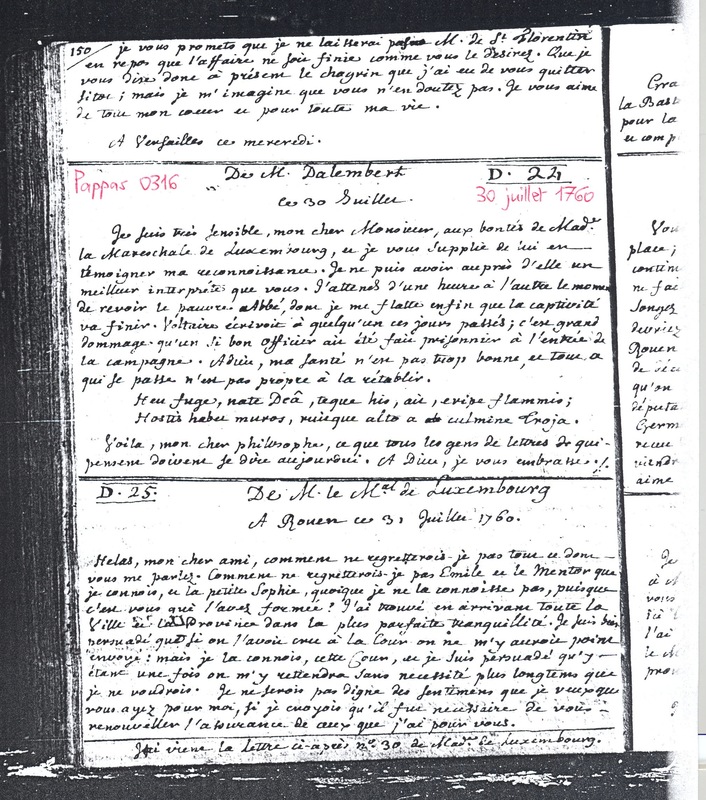 150 / je vous promets que je ne laisserai pas M. de St. Florentin
en repos que l'affaire ne soit finie comme vous le desirez. Que je
vous dise donc à présent le chagrin que j'ai eu de vous quitter
sitot; mais je m'imagine que vous n'en doutez pas. Je vous aime
de tout mon coeur et pour toute ma vie.
A Versailles ce mercredi.
Pappas 0316
De M. Dalembert
D. 24
ce 30 Juillet.
30 juillet 1760
Je suis très sensible, mon cher Monsieur, aux bontés de Mad.e
la Mareschale de Luxembourg, et je vous supplie de lui en
témoigner ma reconnoissance. Je ne puis avoir auprès d'elle un
meilleur interprete que vous. J'attends d'une heure à l'autre le moment
de revoir le pauvre Abbé, dont je me flatte enfin que la captivité
va finir. Voltaire écrivoit à quelqu'un ces jours passés; c'est grand
dommage qu'un si bon officier ait été fait prisonnier à l'entrée de
la campagne. Adieu, ma santé n'est pas trop bonne, et tout
qui se passe n'est pas propre à la rétablir.
Heu fuge, nate Deâ, teque his, ait, eripe flammis;
Hostis habet muros, ruitque alto a culmine Troja.
Voila, mon cher philosophe, ce que tous les gens de lettres qui
pensent doivent se dire aujourdui. A Dieu, je vous embrasse ./.
D. 25.
De M. le Mal. de Luxembourg
A Rouen ce 31 Juillet 1760.
Helas, mon cher ami, comment ne regretterois-je pas tout ce dont
vous me parlez. Comment ne regretterois-je pas Emile et le Mentor que
je connois, et la petite Sophie, quoique je ne la connoisse pas, puisque
c'est vous qui l'avez formée? J'ai trouvé en arrivant toute la
Ville et la Province dans la plus parfaite tranquillité. Je suis bien
persuadé que si on l'avoit cru à la Cour on ne m'y auroit point
envoyé: mais je la connois, cette Cour, et je suis persuadé qu'y
étant une fois on m'y retiendra sans necessité plus longtems que
je ne voudrois. Je ne serois pas digne des sentimens que je veux que
vous ayez pour moi, si je croyois qu'il fut necessaire de vous
renouveller l'assurance de ceux que j'ai pour vous.
Ici vient la lettre ci-après n.o 30 de Mad.e de Luxembourg.
la Bast
pour la
et comp
Vou
place;
continu
ne fai
Songez
devriez
Rouen
qu'on
députa
Germ
viendr
aime
Je
vous
l'ai
le M